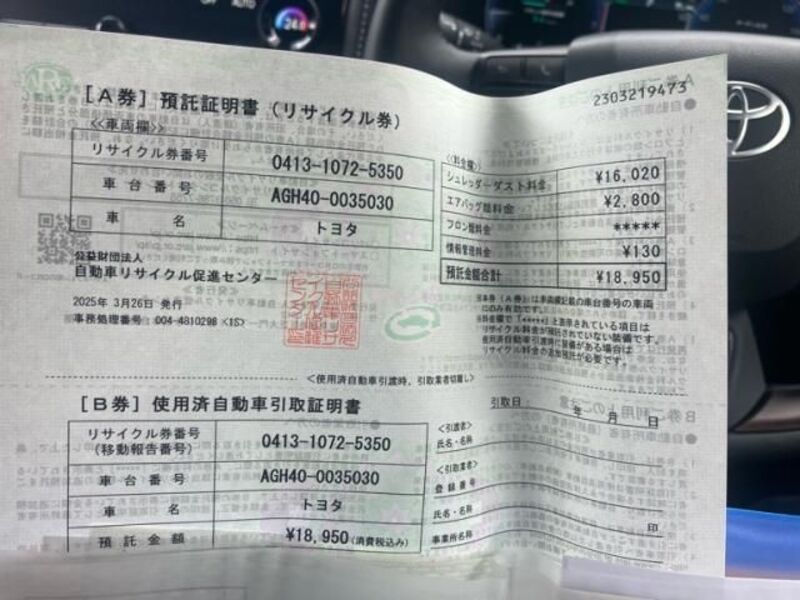 2303219473
[A券] 預託証明書（リサイクル券）
≪車両欄≫
リサイクル券番号 0413-1072-5350
車台番号 AGH40-0035030
車名 トヨタ
公益財団法人
自動車リサイクル促進センター
2025年 3月26日 発行
事務処理番号 004-4810298 <1S>
≪料金欄≫
シュレッダーダスト料金 ¥16,020
エアバッグ類料金 ¥2,800
フロン類料金 *****
情報管理料金 ¥130
預託金額合計 ¥18,950
※本券（A券）は車両欄記載の車台番号の車両
にのみ有効です。
※料金欄で「*****」と表示されている項目は
リサイクル料金が預託されていない装備です。
使用済自動車引渡時に装備がある場合は
リサイクル料金の追加預託が必要です。
<使用済自動車引渡時、引取業者切離し>
[B券] 使用済自動車引取証明書
引取日： 年 月 日
リサイクル券番号
(移動報告番号) 0413-1072-5350
車台番号 AGH40-0035030
車名 トヨタ
預託金額 ¥18,950(消費税込み)
<引渡者>
氏名・名称
<引取業者>
登録番号
氏名・名称 印
事業所名称